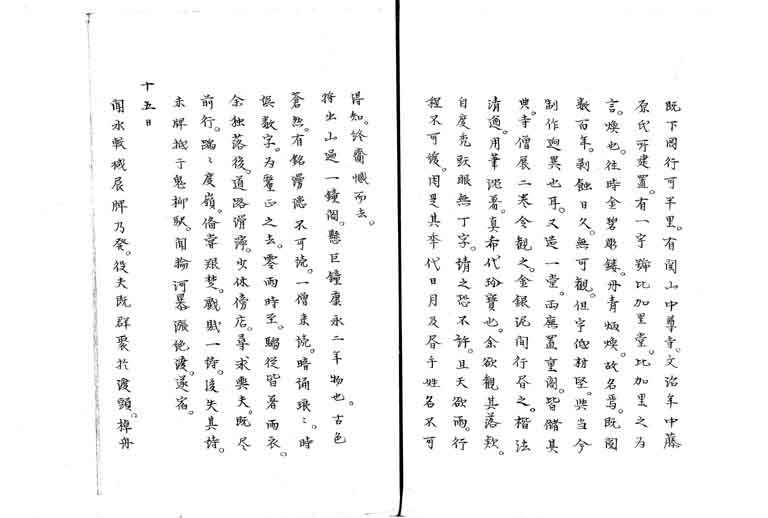 既下國行可半里。有関山中尊寺。文治年中藤
原氏所建置。有一宇號比加里堂。比加里之為
言。煥也。往時金碧彫鏤。丹青炳煥。故名焉。既閲
数百年。剥蝕日久。無可觀。但字低材堅。與当今
制作逈異也耳。又造一堂。両廡置重閣。皆儲其
典。寺僧展二巻令觀之。金銀泥間行畨之。楷法
清遒。用筆沈著。真希代珍寶也。余欲觀其落欵。
自度竟臥眼無丁字。請之恐不許。且天欲雨。行
程不可後。因是其年代日月及畨手姓名不可
得知。於齋憾而去。
将出山過一鐘閣。懸巨鐘康永二年物也。古色
蒼然。有銘漫漶不可読。一僧来読。暗誦琅々。時
誤数字。為釐正之去。零雨時至。騶従皆著雨衣。
余独落後。道路滑濘。少休傍店。尋求輿夫。既尽
前行。踽々度嶺。俻嘗艱楚。戯賦一詩。後失其詩。
未牌抵于鬼柳駅。聞輪河暴漲絶渡。遂宿。
十五日
聞水較減辰牌乃發。役夫既群聚於渡頭。棹舟